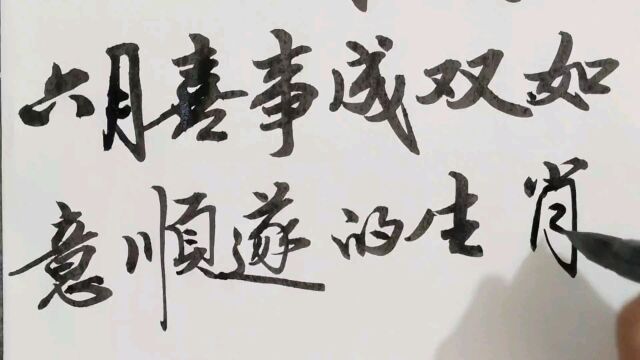 六月喜事成双如
意順遂的生肖